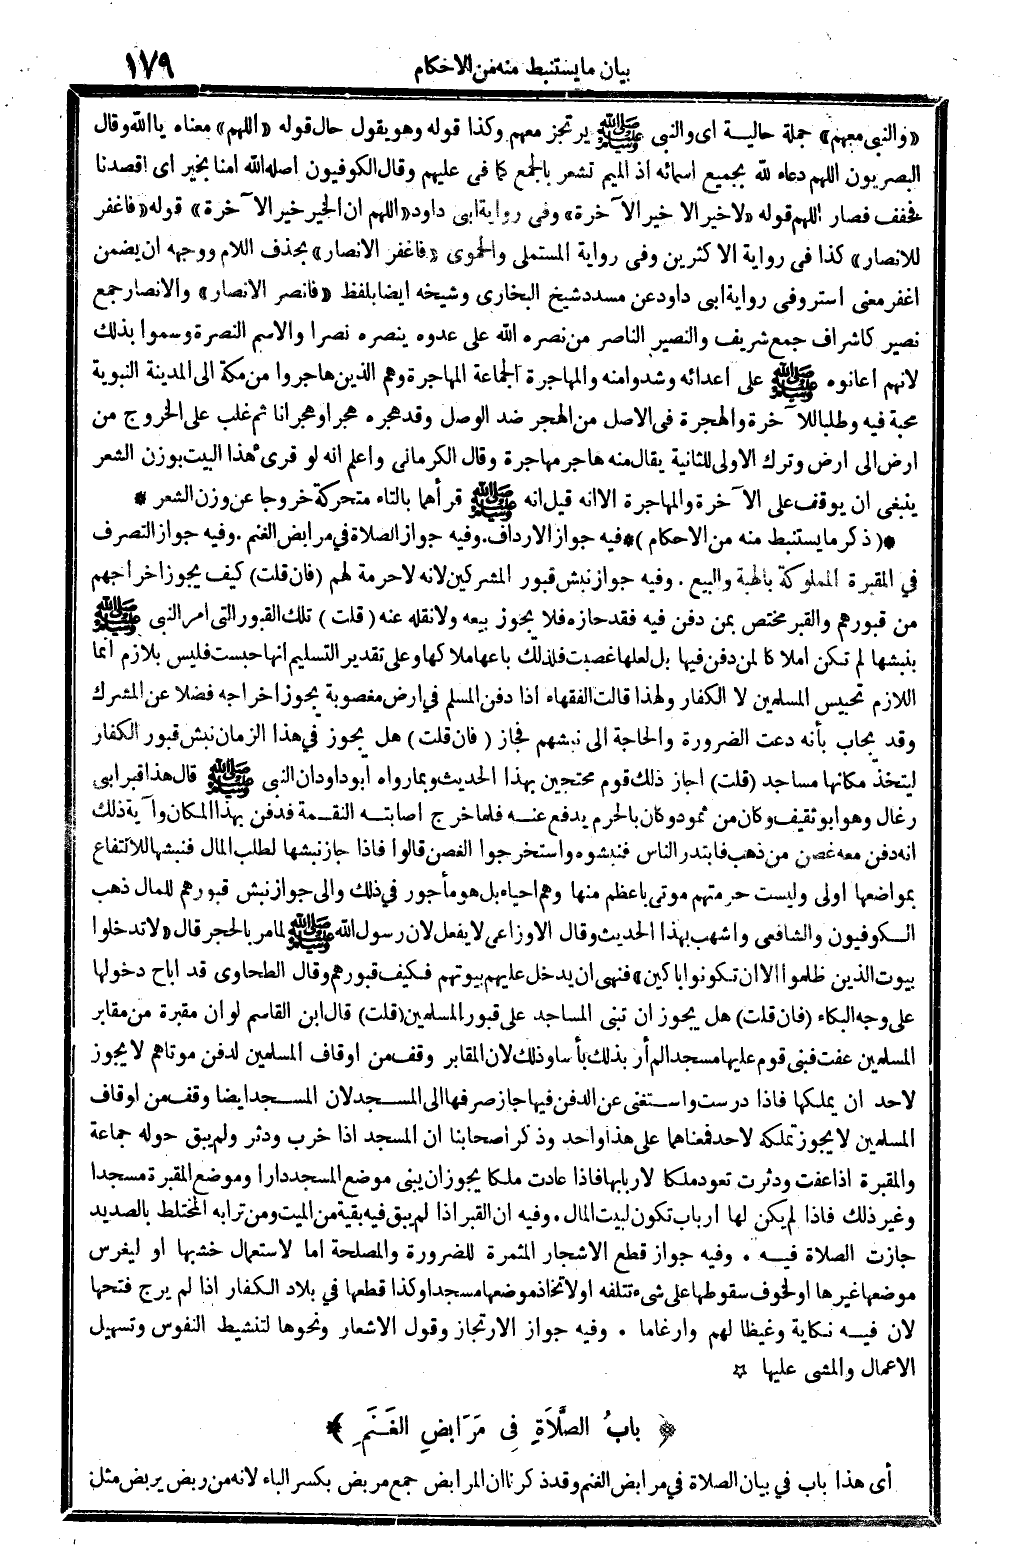 بيان ما يستنبط منه من الاحكام ١٧٩
«والنبى معهم» جملة حالية اى والنبى ﷺ يرتجز معهم وكذا قوله وهو يقول حال قوله «اللهم» معناه يا الله وقال
البصريون اللهم دعاء لله بجميع اسمائه اذ الميم تشعر بالجمع كما فى عليهم وقال الكوفيون اصله الله امنا بخير اى اقصدنا
فخفف فصار اللهم قوله «لاخير الا خير الآخرة» وفى رواية ابى داود «اللهم ان الخير خير الآخرة» قوله «فاغفر
للانصار» كذا فى رواية الاكثرين وفى رواية المستملى والحموى «فاغفر الانصار» بحذف اللام ووجهه ان يضمن
اغفر معنى استر وفى رواية ابى داود عن مسدد شيخ البخارى وشيخه ايضا بلفظ «فانصر الانصار» والانصار جمع
نصير كاشراف جمع شريف والنصير الناصر من نصره الله على عدوه ينصره نصرا والاسم النصرة وسموا بذلك
لانهم اعانوه ﷺ على اعدائه وشدوا منه والمهاجرة الجماعة المهاجرة وهم الذين هاجروا من مكة الى المدينة النبوية
محبة فيه وطلبا للآخرة والهجرة فى الاصل من الهجر ضد الوصل وقد هجره هجرا وهجرانا ثم غلب على الخروج من
ارض الى ارض وترك الاولى للثانية يقال منه هاجر مهاجرة وقال الكرمانى واعلم انه لو قرىء هذا البيت بوزن الشعر
ينبغى ان يوقف على الآخرة والمهاجرة الا انه قيل انه ﷺ قرأهما بالتاء متحركة خروجا عن وزن الشعر *
*(ذكر ما يستنبط منه من الاحكام)* فيه جواز الارداف. وفيه جواز الصلاة في مرابض الغنم. وفيه جواز التصرف
في المقبرة المملوكة بالهبة والبيع. وفيه جواز نبش قبور المشركين لانه لا حرمة لهم (فان قلت) كيف يجوز اخراجهم
من قبورهم والقبر مختص بمن دفن فيه فقد حازه فلا يجوز بيعه ولا نقله عنه (قلت) تلك القبور التى امر النبى ﷺ
بنبشها لم تكن املاكا لمن دفن فيها بل لعلها غصبت فلذلك باعها ملاكها وعلى تقدير التسليم انها حبست فليس بلازم انما
اللازم تحبيس المسلمين لا الكفار ولهذا قالت الفقهاء اذا دفن المسلم في ارض مغصوبة يجوز اخراجه فضلا عن المشرك
وقد يجاب بأنه دعت الضرورة والحاجة الى نبشهم فجاز (فان قلت) هل يجوز في هذا الزمان نبش قبور الكفار
ليتخذ مكانها مساجد (قلت) اجاز ذلك قوم محتجين بهذا الحديث وبما رواه ابو داود ان النبى ﷺ قال هذا قبر ابى
رغال وهو ابو ثقيف وكان من ثمود وكان بالحرم يدفع عنه فلما خرج اصابته النقمة فدفن بهذا المكان وآية ذلك
انه دفن معه غصن من ذهب فابتدر الناس فنبشوه واستخرجوا الغصن قالوا فاذا جاز نبشها لطلب المال فنبشها للانتفاع
بمواضعها اولى وليست حرمتهم موتى باعظم منها وهم احياء بل هو مأجور في ذلك والى جواز نبش قبورهم للمال ذهب
الكوفيون والشافعى واشهب بهذا الحديث وقال الاوزاعى لا يفعل لان رسول الله ﷺ لما مر بالحجر قال «لا تدخلوا
بيوت الذين ظلموا الا ان تكونوا باكين» فنهى ان يدخل عليهم بيوتهم فكيف قبورهم وقال الطحاوى قد اباح دخولها
على وجه البكاء (فان قلت) هل يجوز ان تبنى المساجد على قبور المسلمين (قلت) قال ابن القاسم لو ان مقبرة من مقابر
المسلمين عفت فبنى قوم عليها مسجدا لم أر بذلك بأسا وذلك لان المقابر وقف من اوقاف المسلمين لدفن موتاهم لا يجوز
لاحد ان يملكها فاذا درست واستغنى عن الدفن فيها جاز صرفها الى المسجد لان المسجد ايضا وقف من اوقاف
المسلمين لا يجوز تملكه لاحد فمعناهما على هذا واحد وذكر اصحابنا ان المسجد اذا خرب ودثر ولم يبق حوله جماعة
والمقبرة اذا عفت ودثرت تعود ملكا لاربابها فاذا عادت ملكا يجوز ان يبنى موضع المسجد دارا وموضع المقبرة مسجدا
وغير ذلك فاذا لم يكن لها ارباب تكون لبيت المال. وفيه ان القبر اذا لم يبق فيه بقية من الميت ومن ترابه المختلط بالصديد
جازت الصلاة فيه. وفيه جواز قطع الاشجار المثمرة للضرورة والمصلحة اما لاستعمال خشبها او ليغرس
موضعها غيرها او لخوف سقوطها على شىء تتلفه او لاتخاذ موضعها مسجدا وكذا قطعها في بلاد الكفار اذا لم يرج فتحها
لان فيه نكاية وغيظا لهم وارغاما. وفيه جواز الارتجاز وقول الاشعار ونحوها لتنشيط النفوس وتسهيل
الاعمال والمشى عليها ☆
﴿ بابُ الصَّلاَةِ فِى مَرَابِضِ الغَنَمِ ﴾
أى هذا باب في بيان الصلاة في مرابض الغنم وقد ذكرنا ان المرابض جمع مربض بكسر الباء لانه من ربض يربض مثل